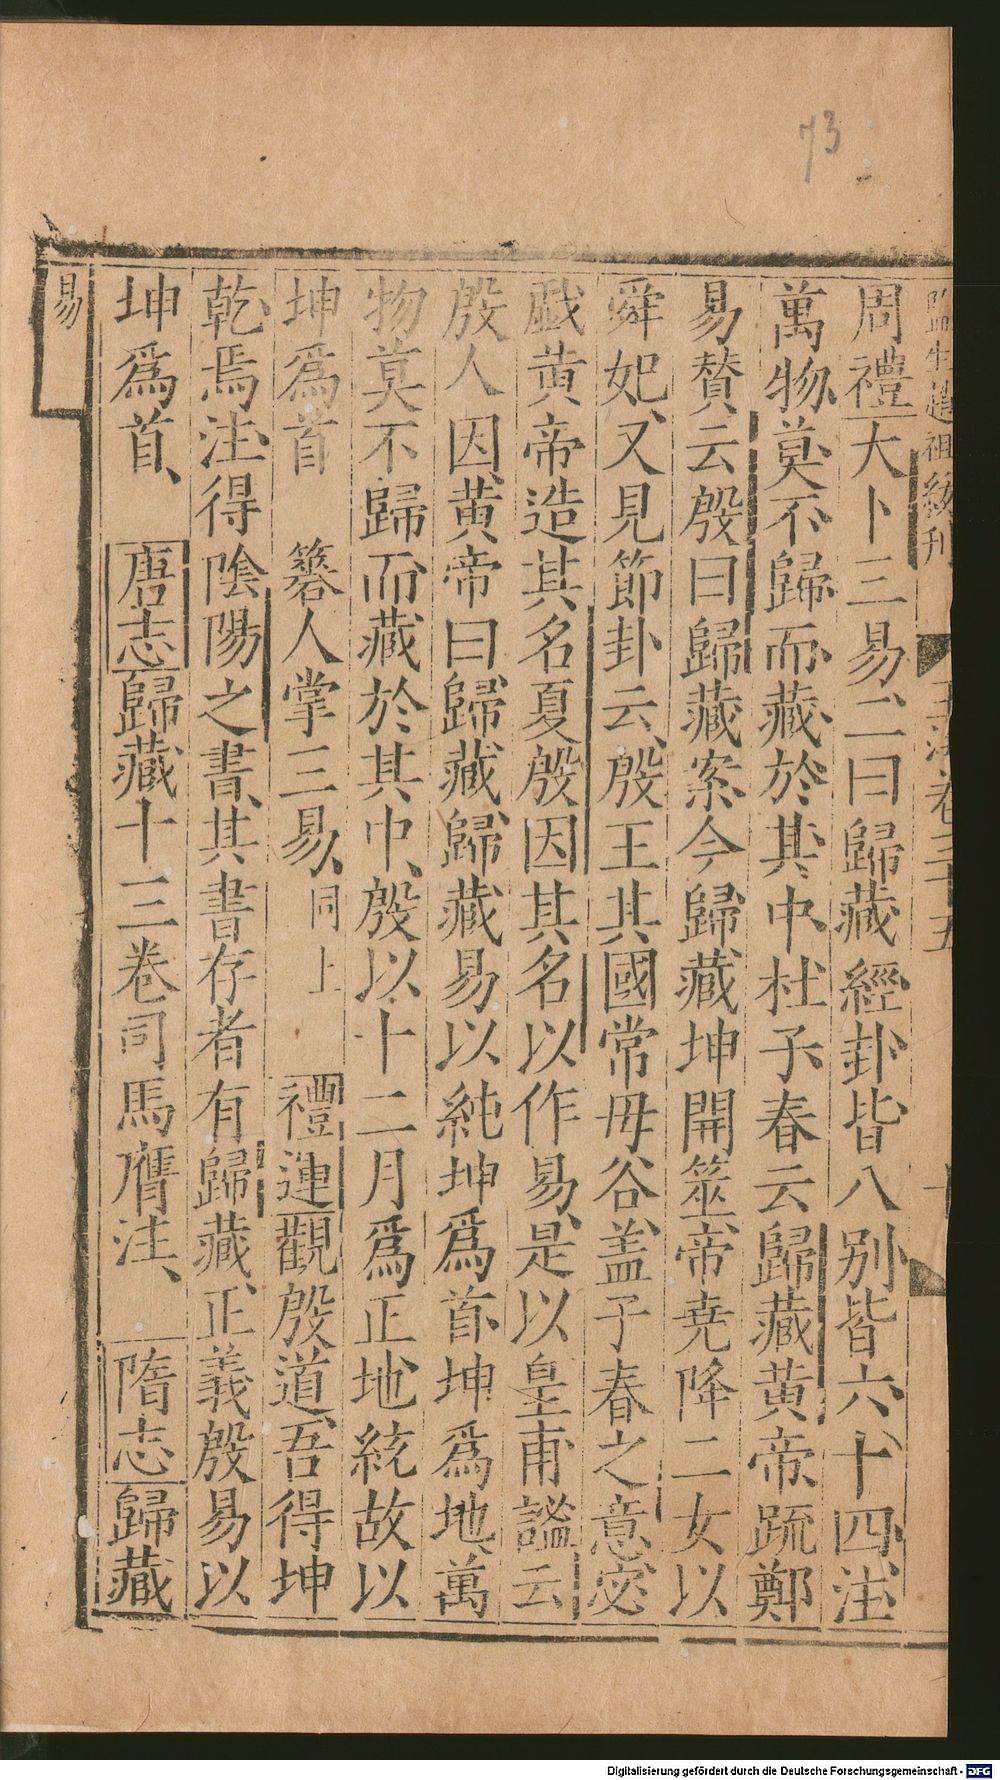 73
周禮大卜三易二曰歸藏經卦皆八別皆六十四注
萬物莫不歸而藏於其中杜子春云歸藏黄帝䟽鄭
易賛云殷曰歸藏案今歸藏坤開筮帝尭降二女以
舜妃又見節卦云殷王其國常毋谷盖子春之意宓
戲黄帝造其名夏殷因其名以作易是以皇甫謐云
殷人因黄帝曰歸藏歸藏易以純坤爲首坤爲地萬
物莫不歸而藏於其中殷以十二月爲正地統故以
坤爲首 簭人掌三易同上 禮運觀殷道吾得坤
乾焉注得隂陽之書其書存者有歸藏正義殷易以
坤爲首 唐志歸藏十三卷司馬膺注 隋志歸藏
易
監生 祖 刋
玉海卷三十五
Digitalisierung gefördert durch die Deutsche Forschungsgemeinschaft - DFG